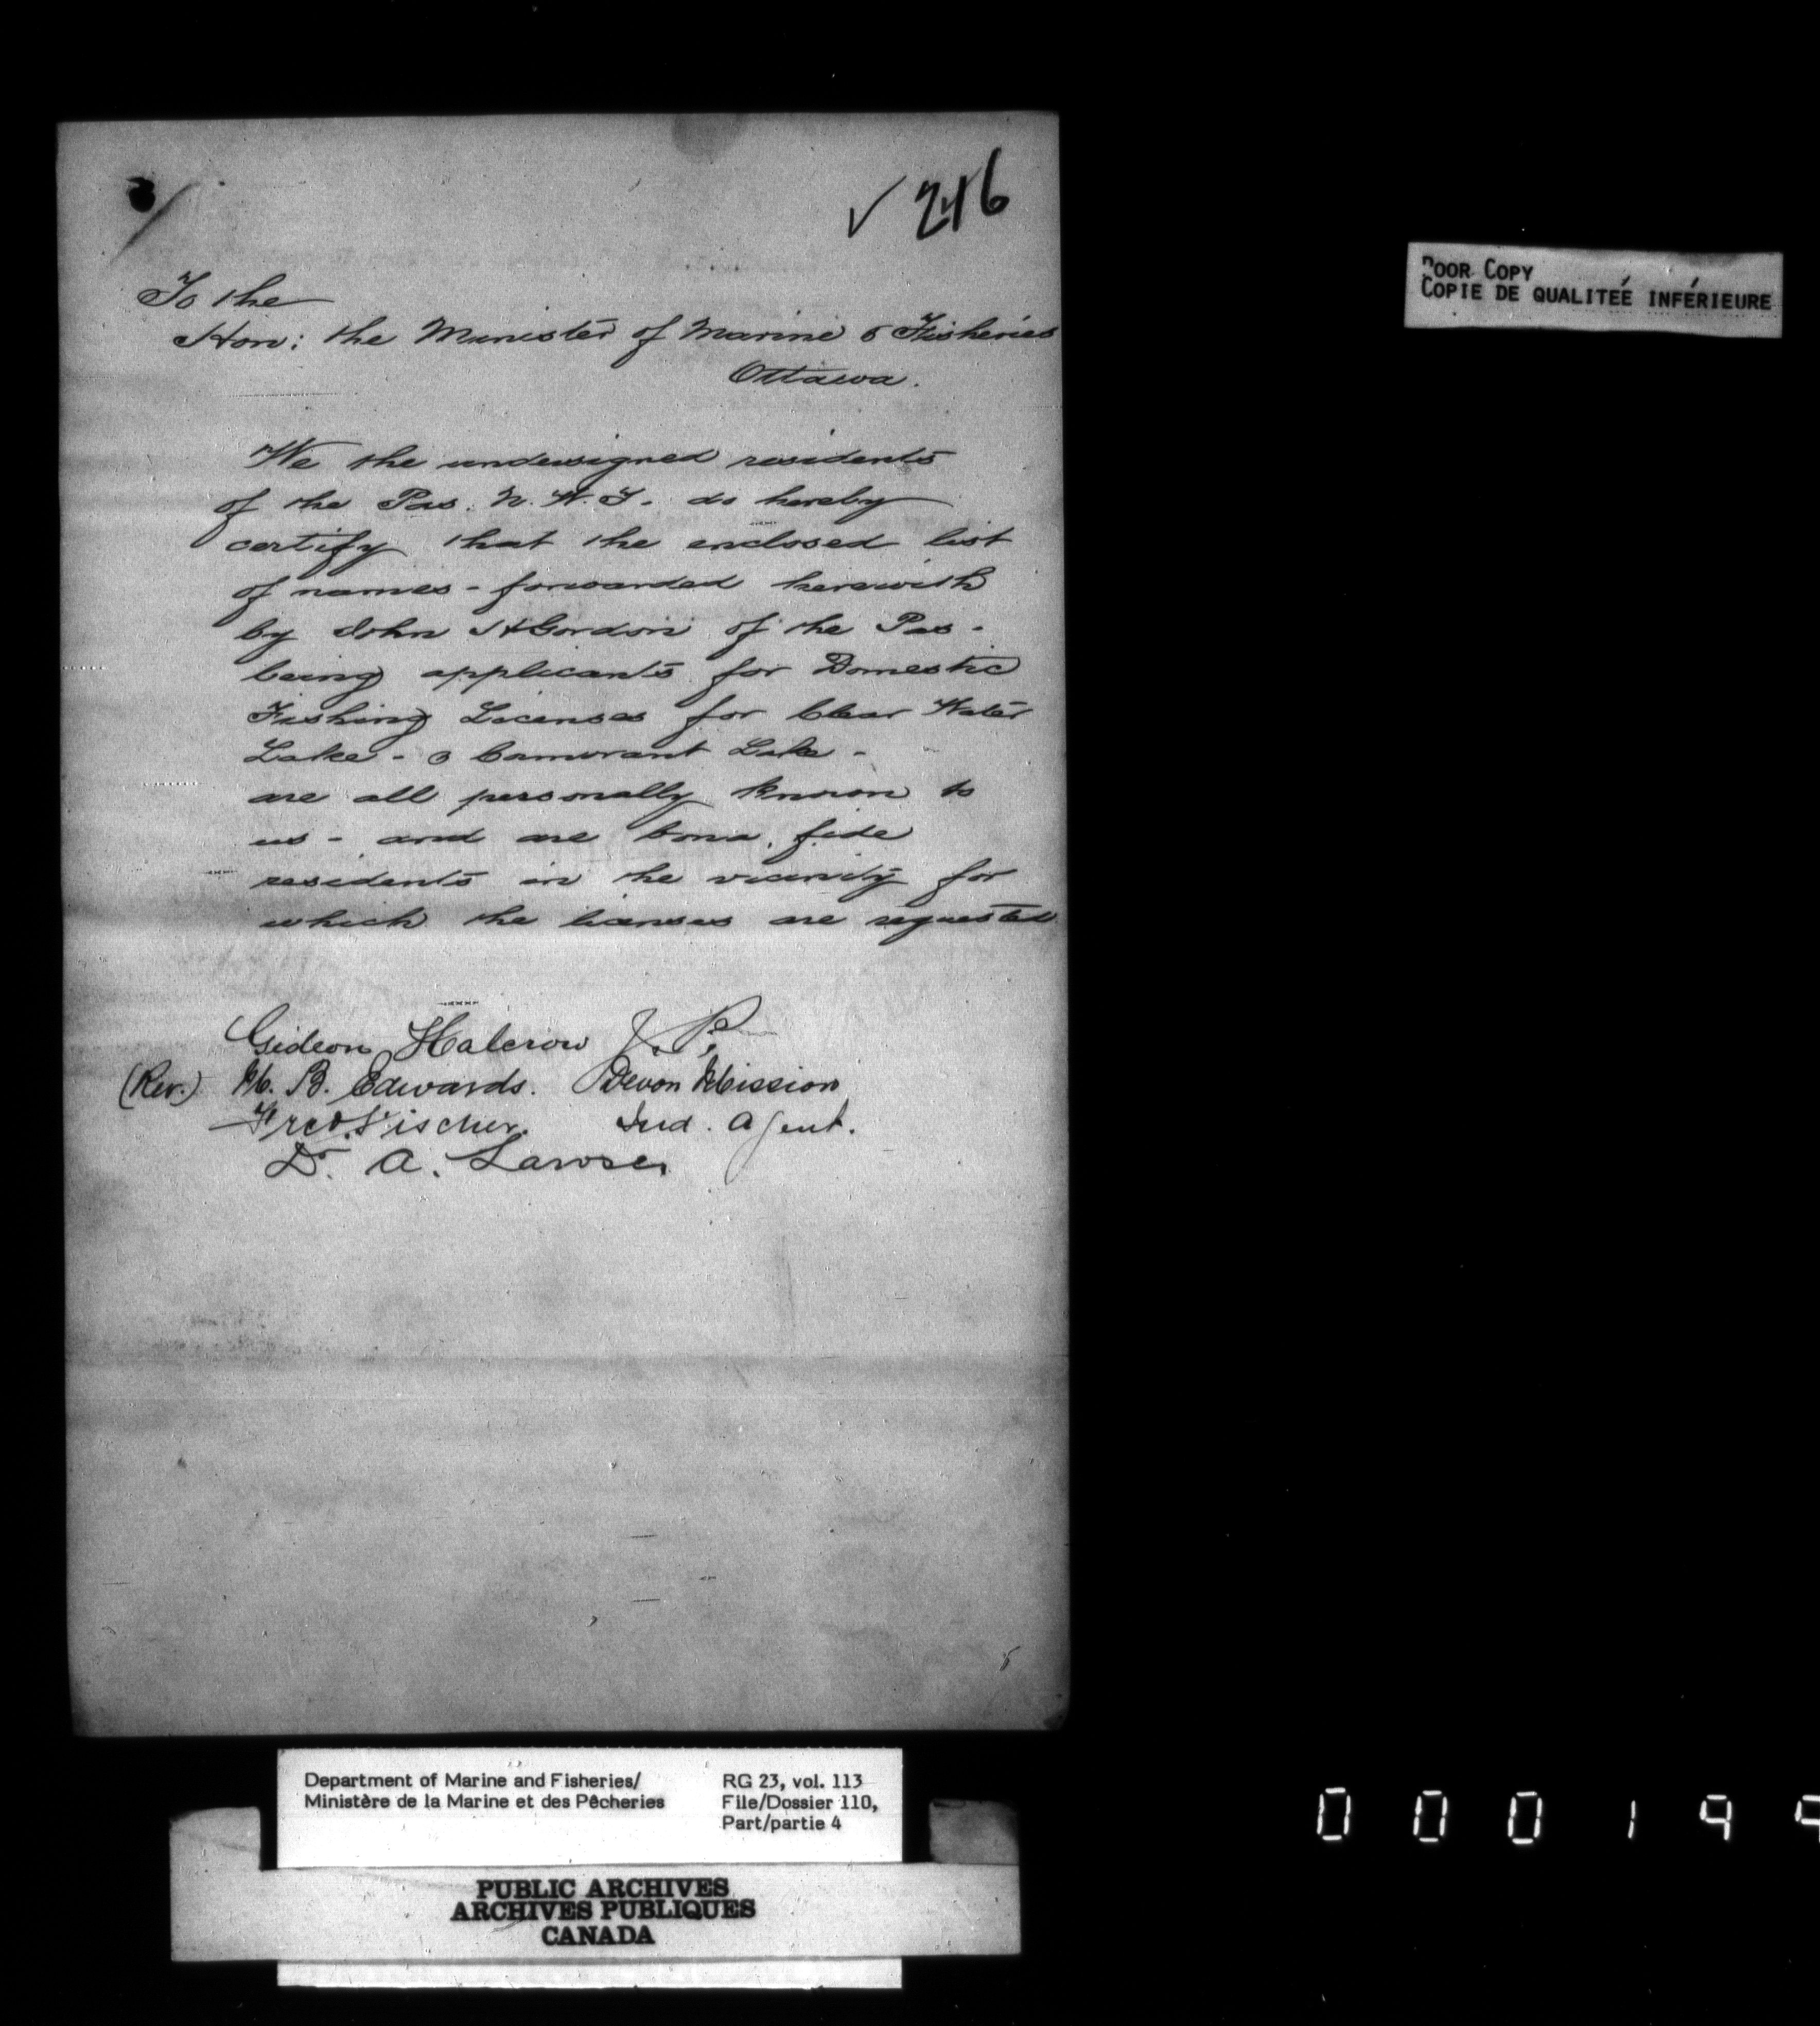 ✓ 246
To the
Hon: the Minister of Marine & Fisheries
Ottawa.
We the undersigned residents
of the Pas. N. W. T. do hereby
certify that the enclosed list
of names - forwarded herewith
by John H Gordon of the Pas -
being applicants for Domestic
Fishing Licenses for Clear Water
Lake - & Comorant Lake -
are all personally known to
us - and are bona. fide
residents in the vicinity for
which the licenses are requested
Gideon Halcrow J. P.
(Rev.) M. B. Edwards. Devon Mission
Fred. Fischer. Ind. Agent.
D. A. Larose
POOR COPY
COPIE DE QUALITEÉ INFÉRIEURE
Department of Marine and Fisheries/
Ministère de la Marine et des Pêcheries
RG 23, vol. 113
File/Dossier 110,
Part/partie 4
PUBLIC ARCHIVES
ARCHIVES PUBLIQUES
CANADA
0 0 0 1 9 9